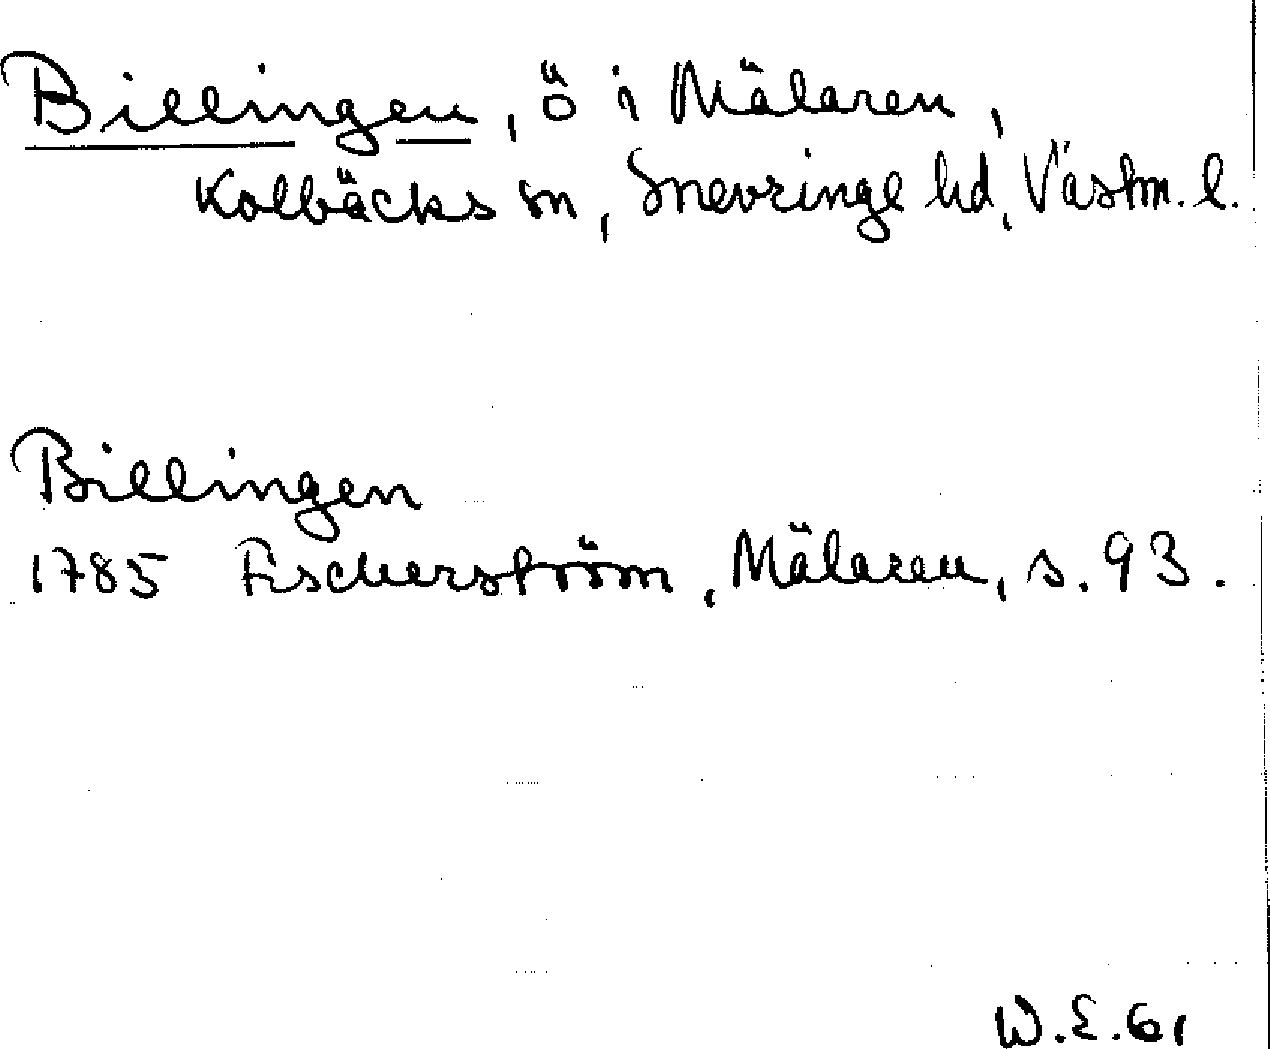 Billingen, ö i Mälaren,
Kolbäcks sn, Snevringe hd, Västm. l.
Billingen
1785 Fischerström, Mälaren, s. 93.
W.E.61